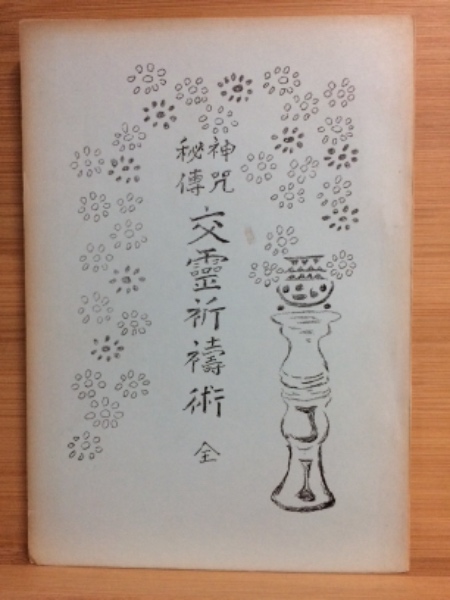 神咒
秘傳
交靈祈禱術 全